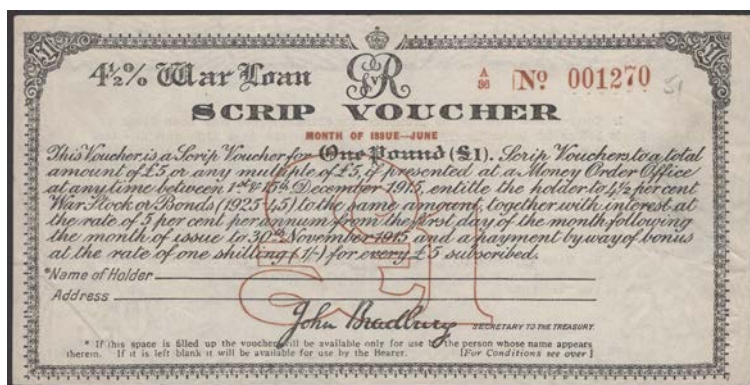 £1 £1
4½% War Loan GVR A/86 No 001270 51
SCRIP VOUCHER
MONTH OF ISSUE—JUNE
This Voucher is a Scrip Voucher for One Pound (£1). Scrip Vouchers to a total
amount of £5 or any multiple of £5, if presented at a Money Order Office
at any time between 1st & 15th December 1915, entitle the holder to 4½ per cent
War Stock or Bonds (1925-45) to the same amount, together with interest at
the rate of 5 per cent per annum from the first day of the month following
the month of issue to 30th November 1915 and a payment by way of bonus
at the rate of one shilling (1/-) for every £5 subscribed.
£1
*Name of Holder
Address
John Bradbury SECRETARY TO THE TREASURY.
* If this space is filled up the voucher will be available only for use by the person whose name appears
therein. If it is left blank it will be available for use by the Bearer. [For Conditions see over]